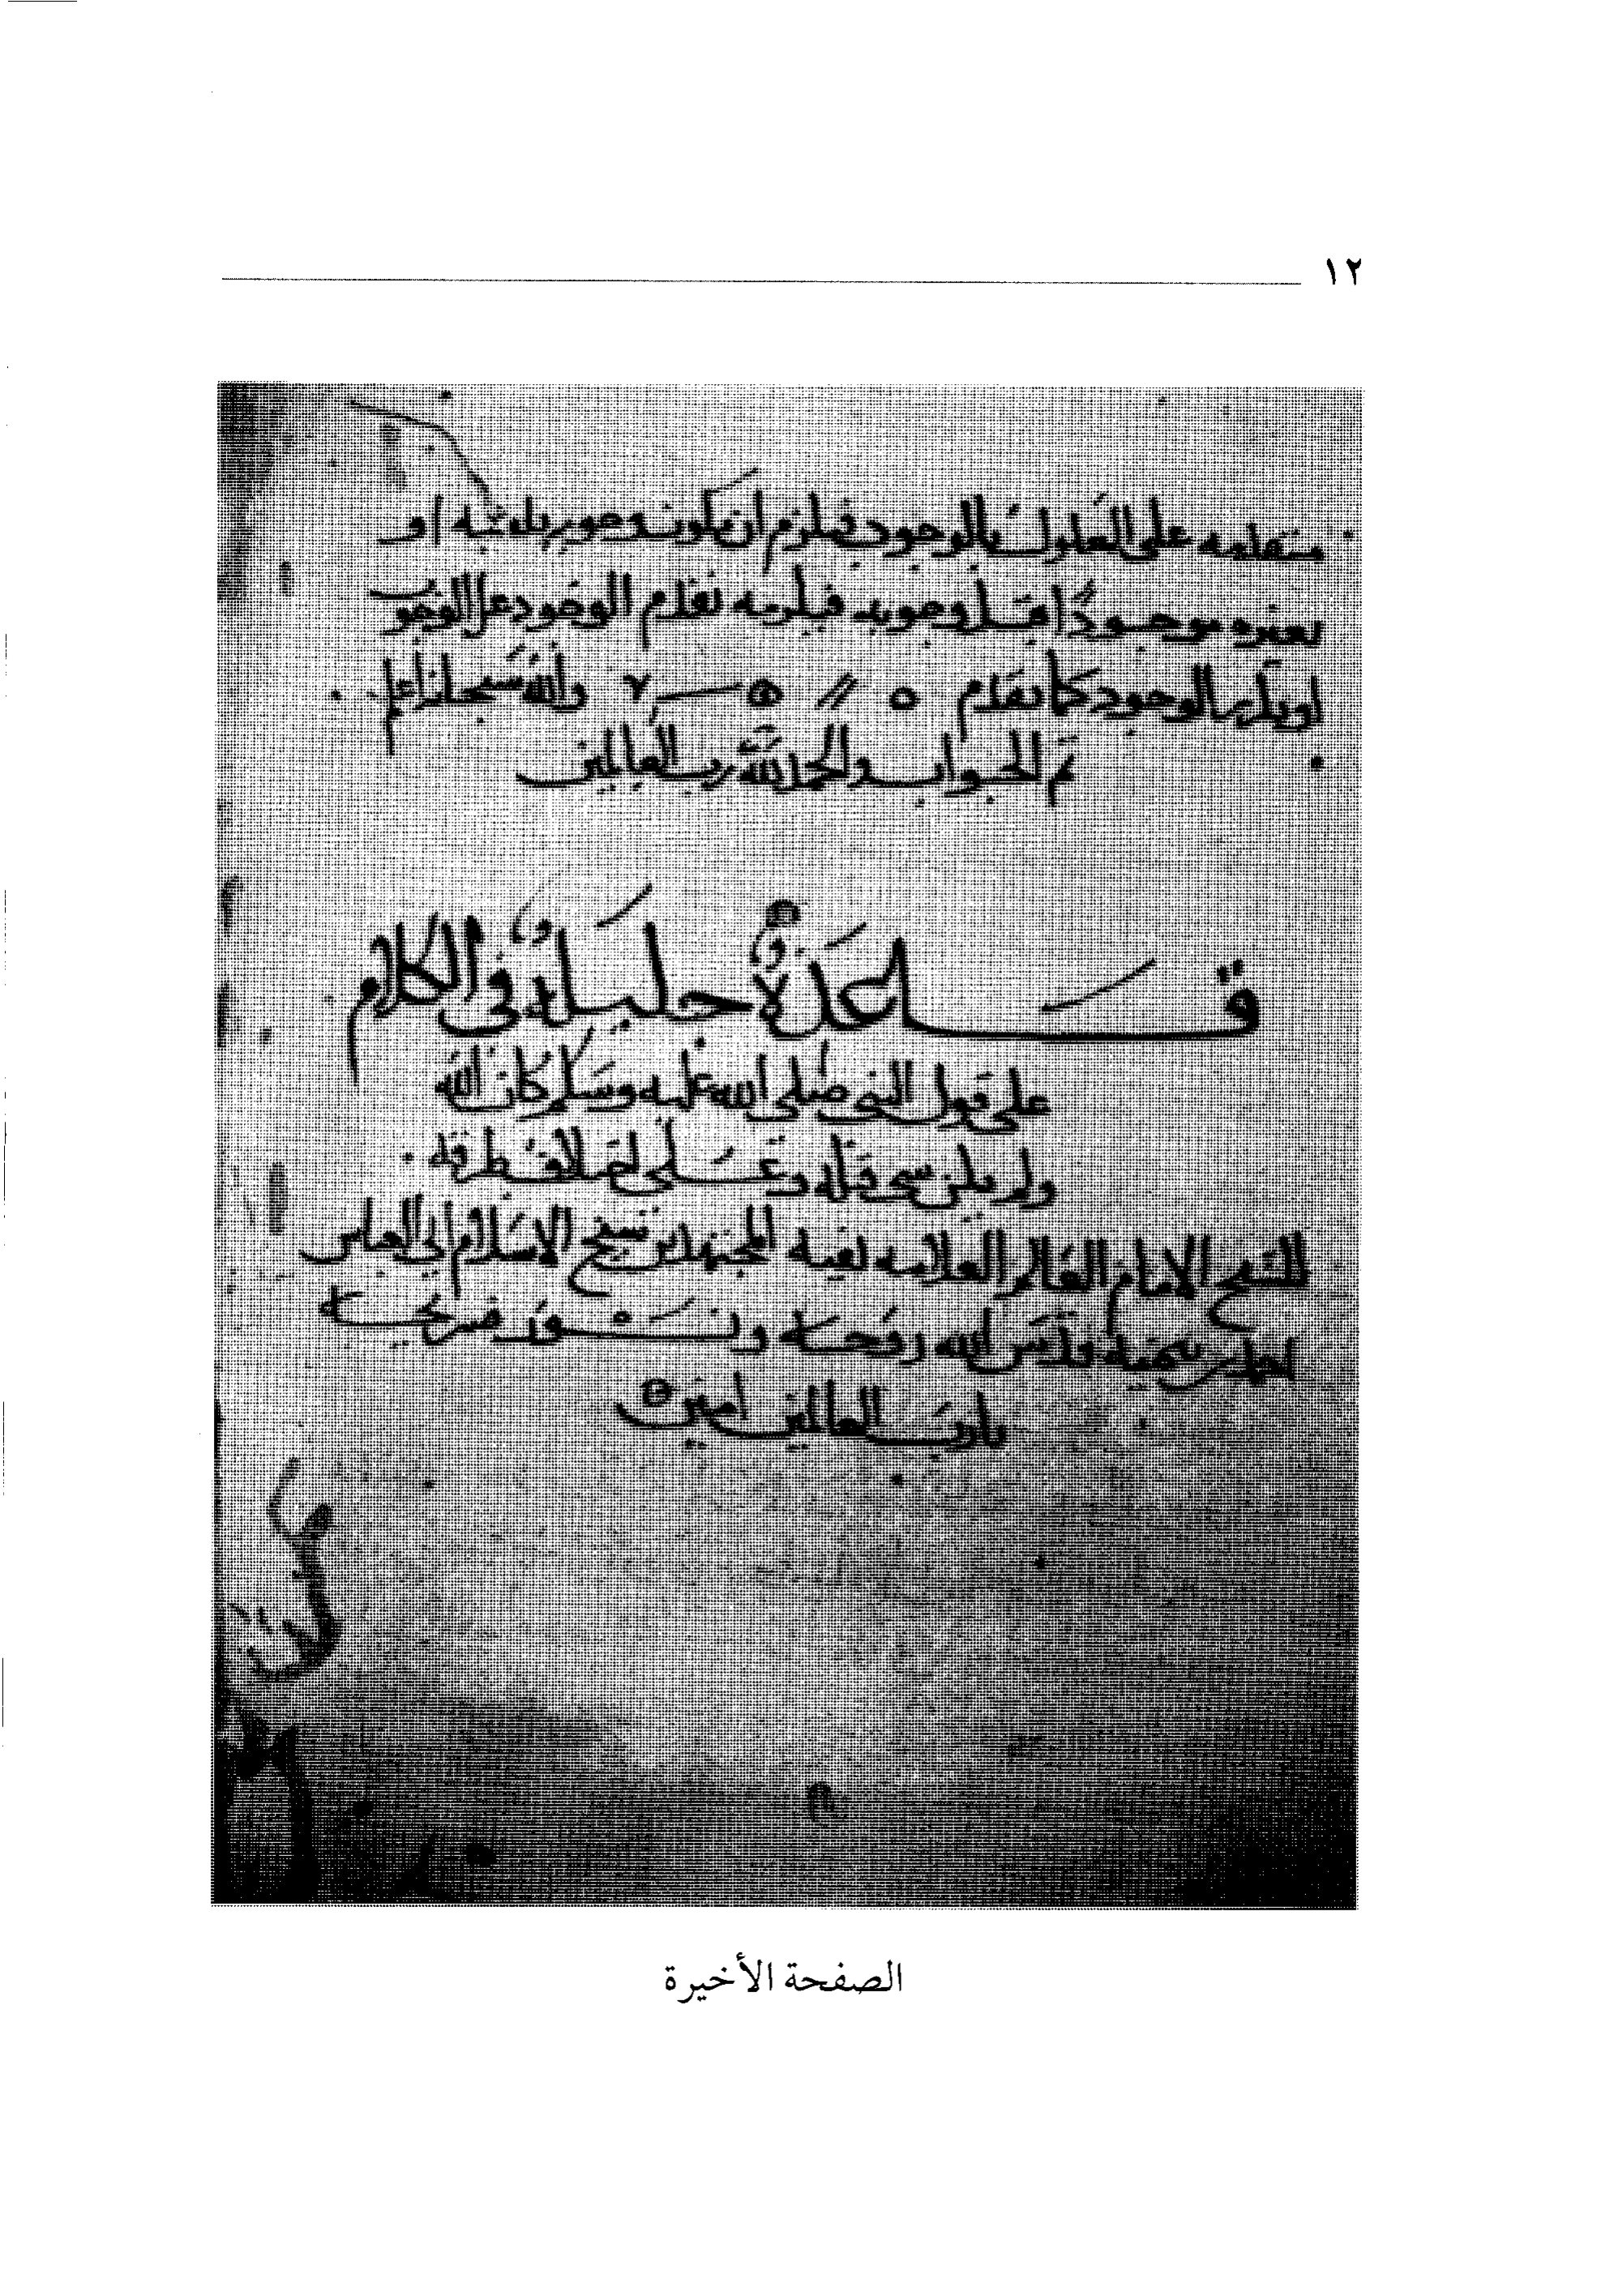 ١٢
متقدمه على المعلول بالوجود فيلزم ان يكون وجوبه بذاته او
بغيره موجودًا قبل وجوبه فيلزمه تقدم الوجود على الوجوب
او يلزم الوجود كما تقدم والله سبحانه اعلم
تم الجواب والحمد لله رب العالمين
قاعدةٌ جليلةٌ في الكلام
على قول النبي صلى الله عليه وسلم كان الله
ولم يكن شي قبله وعلى
للشيخ الامام العالم العلامه بقية المجتهدين شيخ الاسلام ابي العباس
احمد بن تيميه قدس الله روحه ونور ضريحه
يا رب العالمين امين
الصفحة الأخيرة